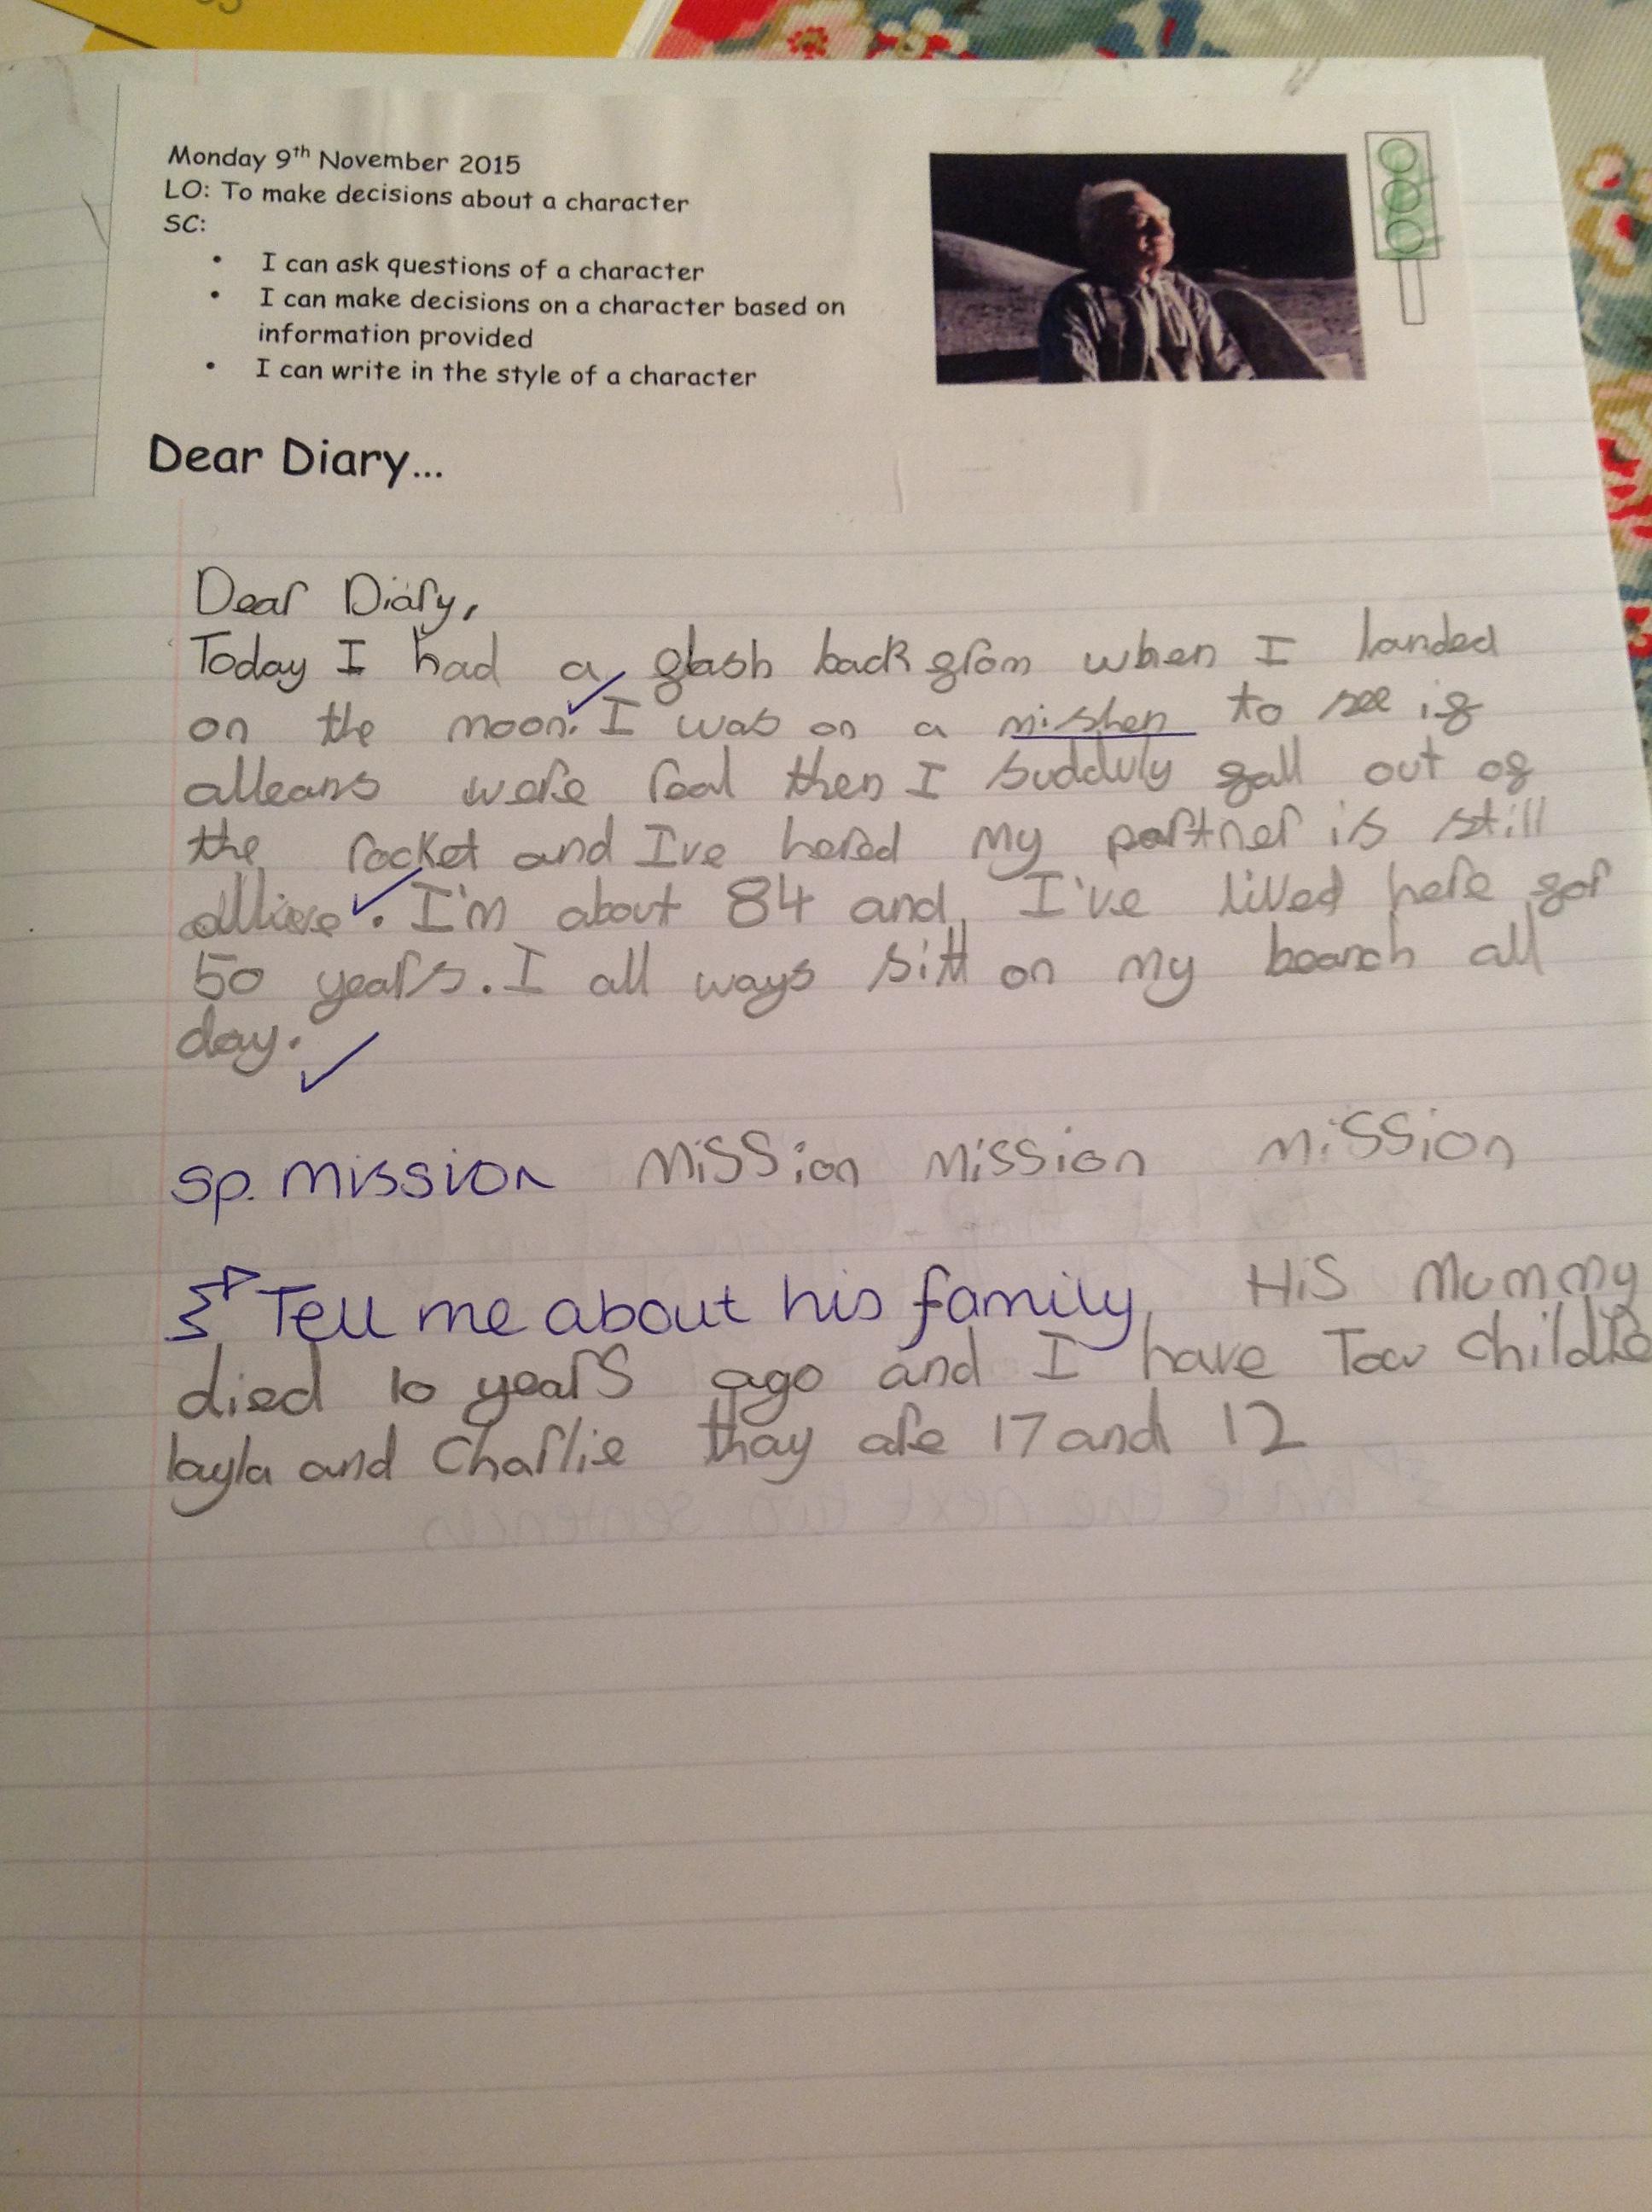 Monday 9th November 2015
LO: To make decisions about a character
SC:
• I can ask questions of a character
• I can make decisions on a character based on
information provided
• I can write in the style of a character
Dear Diary...
Dear Diary,
Today I had a flash back from when I landed
on the moon. I was on a mishen to see if
alleans were real then I sudduly fall out of
the rocket and I've hered my partner is still
allive. I'm about 84 and I've lived here for
50 years. I all ways sitt on my beanch all
day.
sp. mission mission mission mission
Tell me about his family. His Mummy
died 10 years ago and I have Tow childre
layla and Charlie thay are 17 and 12